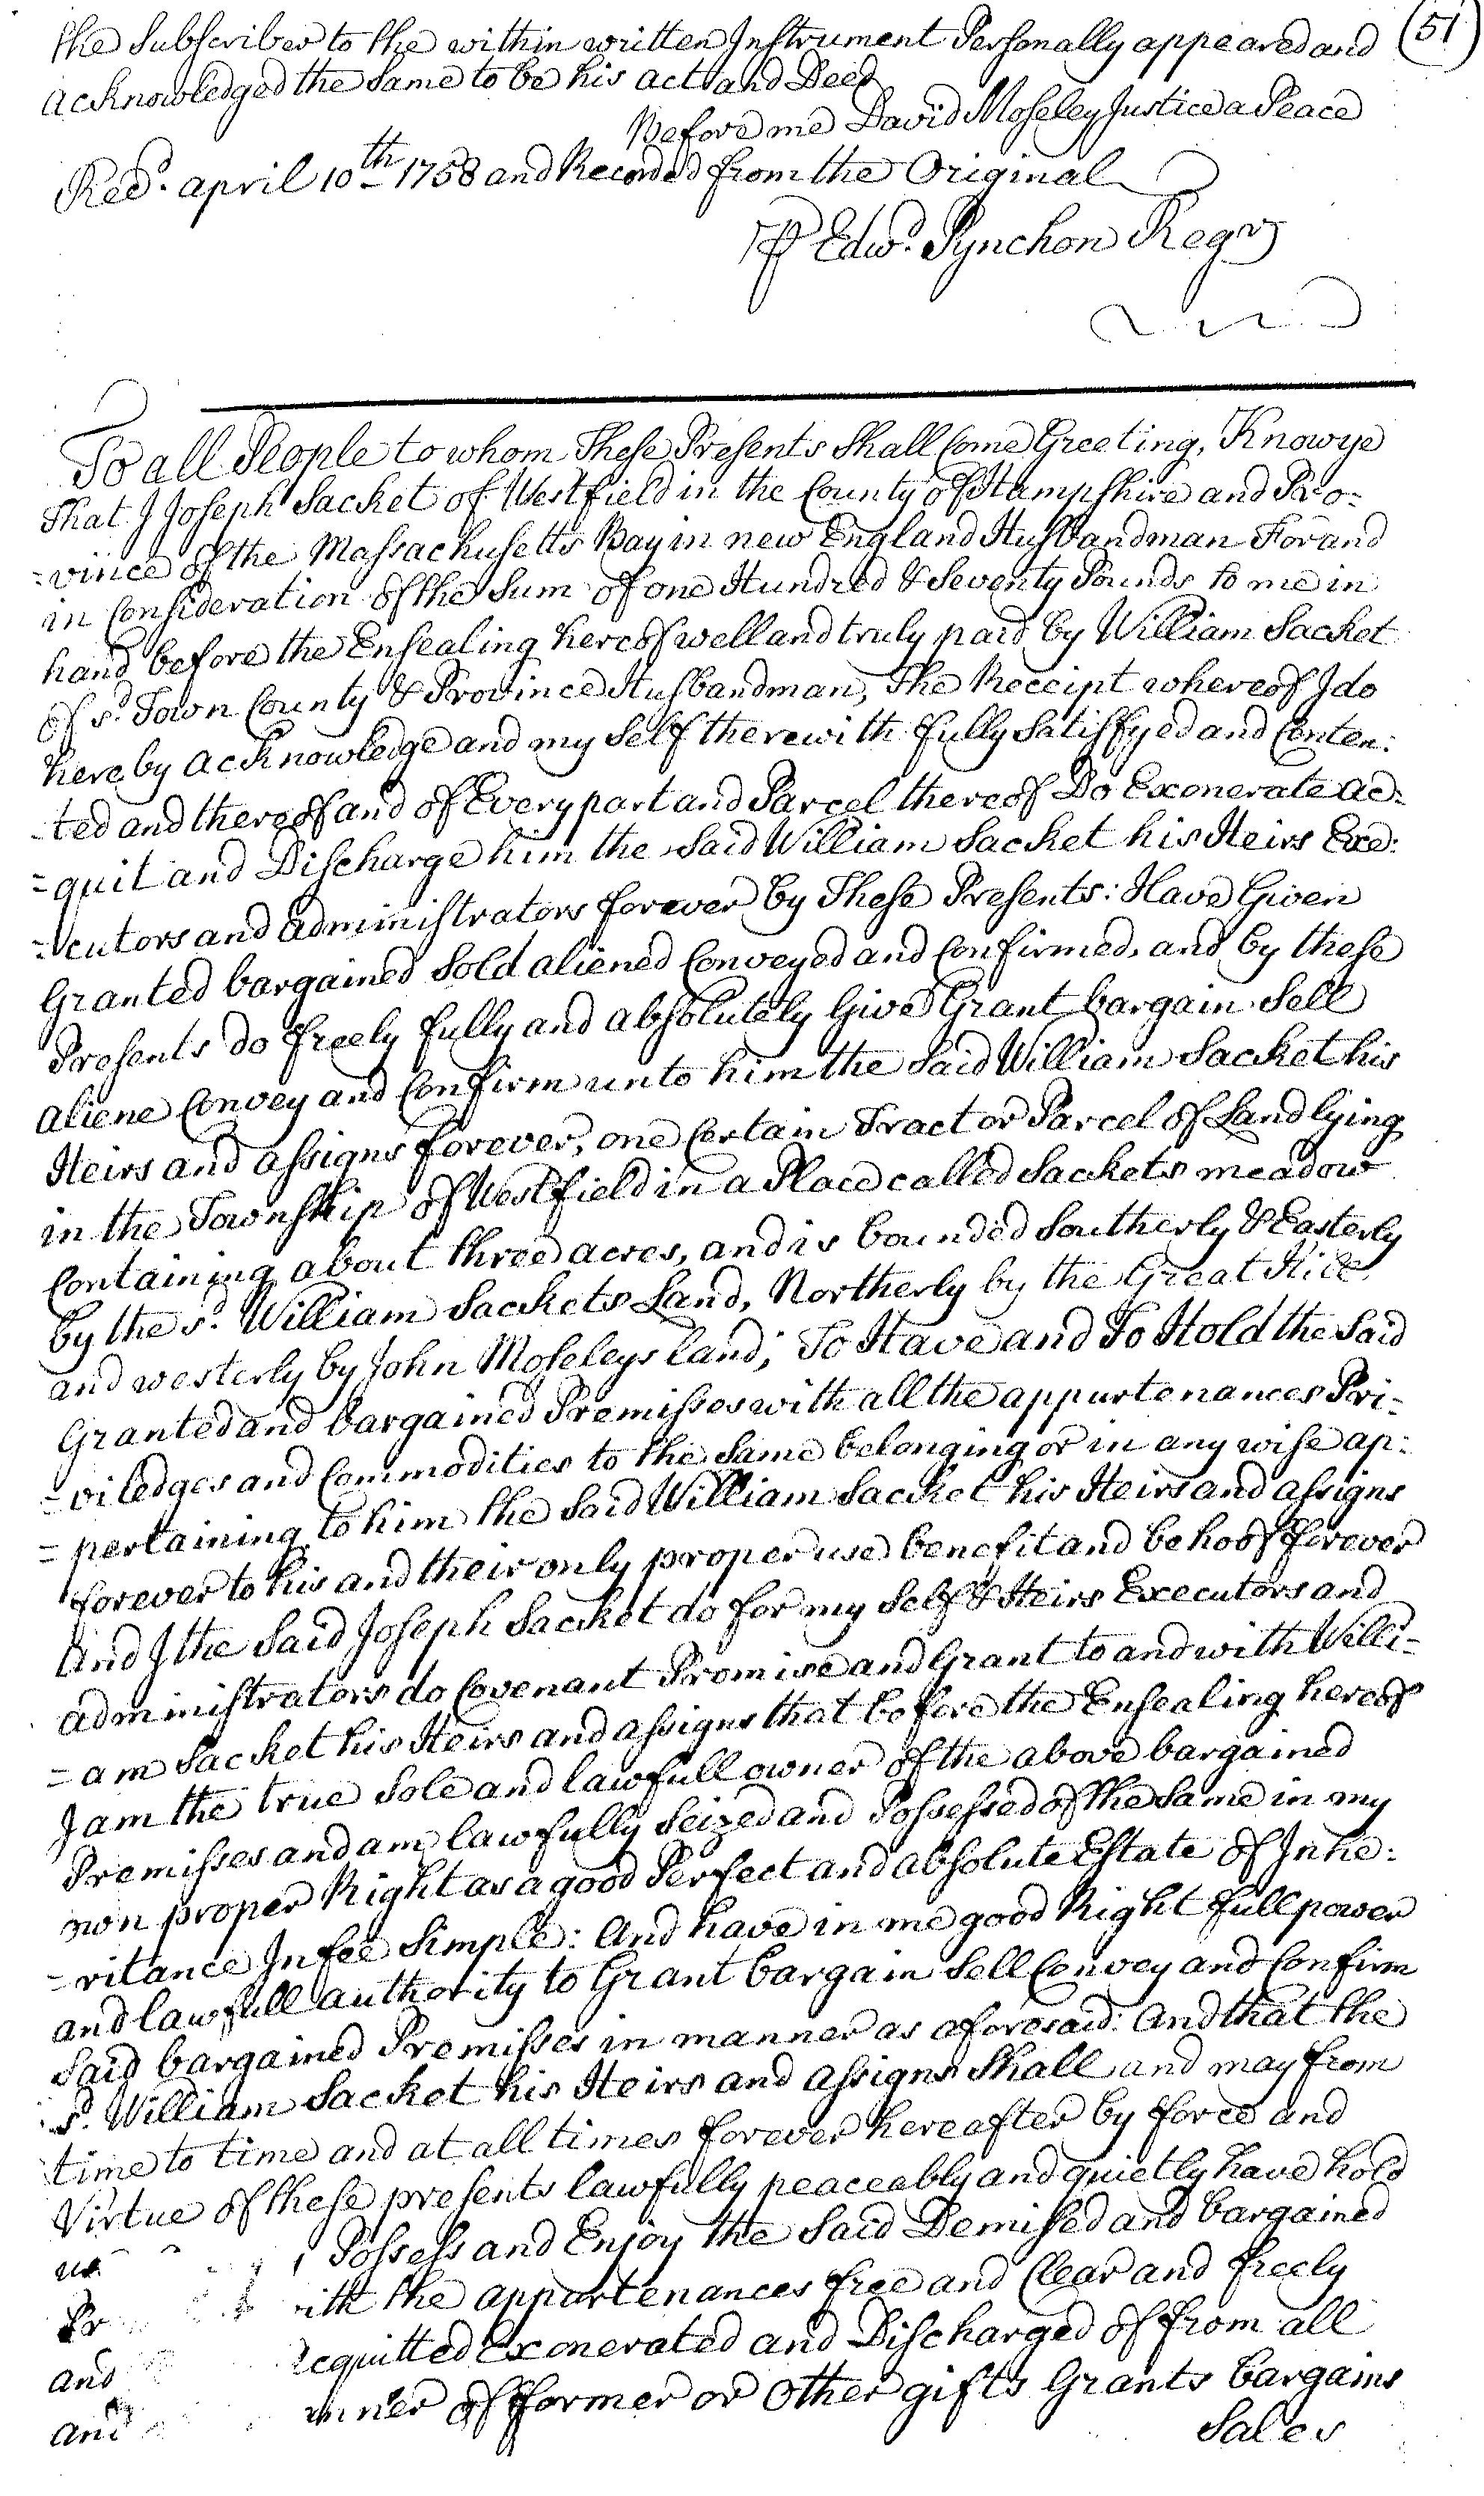 (51)
the Subscriber to the within written Instrument Personally appeared and
acknowledged the Same to be his act and Deed
Before me David Moseley Justice a Peace
Recd. april 10th 1758 and Recorded from the Original
P Edwd. Pynchon Regr
To all People to whom These Presents Shall Come Greeting, Know ye
That I Joseph Sacket of Westfield in the County of Hampshire and Pro-
=vince of the Massachusetts Bay in new England Husbandman For and
in Consideration of the Sum of one Hundred & Seventy Pounds to me in
hand before the Ensealing hereof well and truly paid by William Sacket
of sd. Town County & Province Husbandman, The Receipt whereof I do
hereby acknowledge and my Self therewith fully Satisfyed and Conten:
-ted and thereof and of Every part and Parcel thereof Do Exonerate ac:
=quit and Discharge him the Said William Sacket his Heirs Exe:
=cutors and administrators forever by These Presents: Have Given
Granted bargained Sold aliened Conveyed and Confirmed, and by these
Presents do freely fully and absolutely Give Grant bargain Sell
aliene Convey and Confirm unto him the Said William Sacket his
Heirs and assigns forever, one Certain Tract or Parcel of Land lying
in the Township of Westfield in a Place called Sackets meadow
Containing about three acres, and is bounded Southerly & Easterly
by the sd. William Sackets Land, Northerly by the Great Hill,
and westerly by John Moseleys land; To Have and To Hold the Said
Granted and bargained Premisses with all the appurtenances Pri-
=viledges and Commodities to the Same belonging or in any wise ap:
=pertaining to him the Said William Sacket his Heirs and assigns
forever to his and their only proper use benefit and behoof forever
And I the Said Joseph Sacket do for my Self & Heirs Executors and
administrators do Covenant Promise and Grant to and with Willi-
=am Sacket his Heirs and assigns that before the Ensealing hereof
I am the true Sole and lawfull owner of the above bargained
Premisses and am lawfully Seized and Possessed of the Same in my
own proper Right as a good Perfect and absolute Estate of Inhe:
=ritance In fee Simple: And have in me good Right full power
and lawfull authority to Grant bargain Sell Convey and Confirm
Said bargained Premisses in manner as aforesaid: And that the
sd. William Sacket his Heirs and assigns Shall and may from
time to time and at all times forever hereafter by force and
Virtue of these presents lawfully peaceably and quietly have hold
Possess and Enjoy the Said Demised and bargained
the appurtenances free and Clear and freely
and acquitted Exonerated and Discharged of from all
and of former or other gifts Grants bargains
Sales